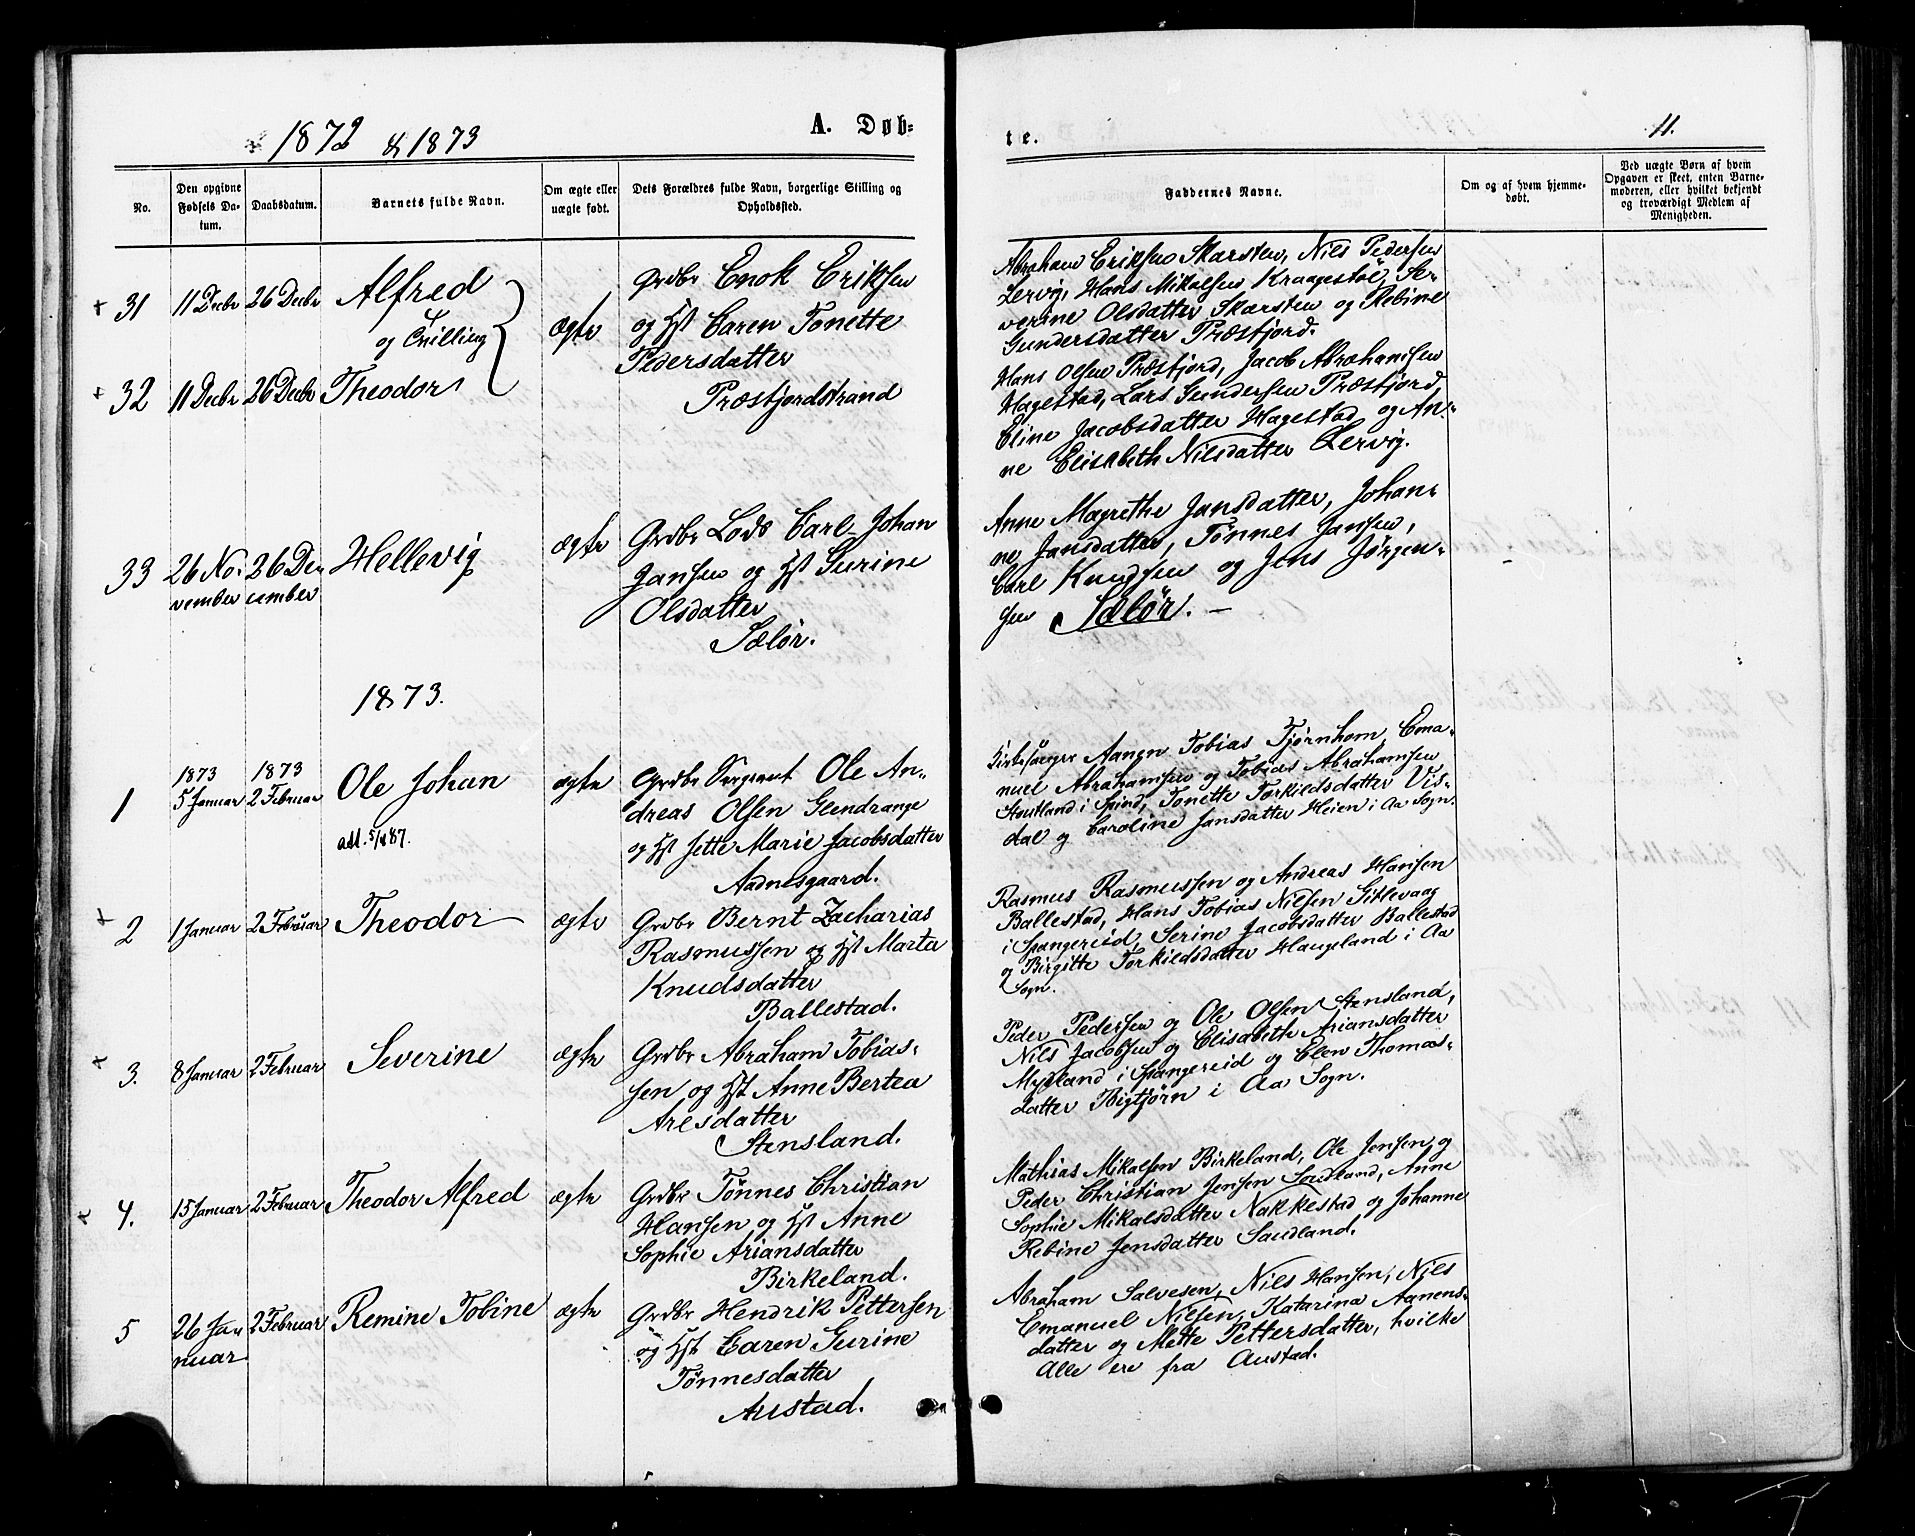 1872 & 1873
A. Døb-
te.
11.
No.
Den opgivne Fødsels Da-tum.
Daabsdatum.
Barnets fulde Navn.
Om ægte eller uægte født.
Dets Forældres fulde Navn, borgerlige Stilling og Opholdssted.
Faddernes Navne.
Om og af hvem hjemme-døbt.
Ved uægte Børn af hvem Opgaven er skeet, enten Barne-moderen, eller hvilket bekjendt og troværdigt Medlem af Menigheden.
31
11 Decbr
26 Decbr
Alfred
og Tvilling
ægte
Grdbr Enok Eriksen
og Hst Caren Tonette
Pedersdatter
Præstfjordstrand
Abraham Eriksen Skarsten, Nils Pedersen
Lervig, Hans Mikalsen Kraagestøl, Se-
verine Olsdatter Skarsten og Rebine
Gundersdatter Præstfjord.
32
11 Decbr
26 Decbr
Theodor
Hans Olsen Præstfjord, Jacob Abrahamsen
Hagestad, Lars Gundersen Præstfjord,
Eline Jacobsdatter Hagestad og An-
ne Elisabeth Nilsdatter Lervig.
33
26 No-
vember
26 De-
cember
Hellevig
ægte
Grdbr Lods Carl Johan
Jansen og Hst Gurine
Olsdatter
Sælør.
Anne Magrethe Jansdatter, Johan-
ne Jansdatter, Tønnes Jansen,
Carl Knudsen og Jens Jørgen-
sen Sælør. —
1873.
1
1873
5 Januar
1873
2 Februar
Ole Johan
att. 5/1 87.
ægte
Grdbr Sergeant Ole An-
dreas Olsen Glendrange
og Hst Jette Marie Jacobsdatter
Aadnesgaard.
Kirkesanger Aanen Tobias Tjørnhom, Ema-
nuel Abrahamsen og Tobias Abrahamsen
Stoutland i Spind, Tonette Torkildsdatter Vis-
dal og Caroline Jansdatter Heien i Aa Sogn.
2
1 Januar
2 Februar
Theodor
ægte
Grdbr Bernt Zacharias
Rasmussen og Hst Marta
Knudsdatter
Ballestad.
Rasmus Rasmussen og Andreas Hansen
Ballestad, Hans Tobias Nilsen Gitlevaag
i Spangereid, Serine Jacobsdatter Ballestad
og Birgitte Torkildsdatter Haugeland i Aa
Sogn.
3.
8 Januar
2 Februar
Severine
ægte
Grdbr Abraham Tobias-
sen og Hst Anne Bertea
Arlsdatter
Stensland.
Peder Pedersen og Ole Olsen Stensland,
Nils Jacobsen og Elisabeth Ariansdatter
Mydland i Spangereid og Elen Thomas-
datter Bigtjørn i Aa Sogn.
4.
15 Januar
2 Februar
Theodor Alfred
ægte
Grdbr Tønnes Christian
Hansen og Hst Anne
Sophie Ariansdatter
Birkeland.
Mathias Mikalsen Birkeland, Ole Jensen og
Peder Christian Jensen Saudland, Anne
Sophie Mikalsdatter Nakkestad og Johanne
Rebine Jensdatter Saudland.
5
26 Ja-
nuar
2 Februar
Remine Tobine
ægte
Grdbr Hendrik Pettersen
og Hst Caren Gurine
Tønnesdatter
Austad.
Abraham Salvesen, Nils Hansen, Nils
Emanuel Nilsen, Katarina Aanens-
datter og Mette Pettersdatter, hvilke
Alle ere fra Austad.